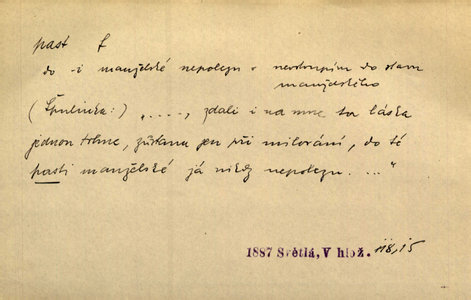 past f
do -i manželské nepolezu = nevstoupím do stavu
manželského
(Špulinka:) „...., zdali i na mne ta láska
jednou trhne, zůstanu jen při milování, do té
pasti manželské já nikdy nepolezu. ..."
1887 Světlá, V hlož. 118,15